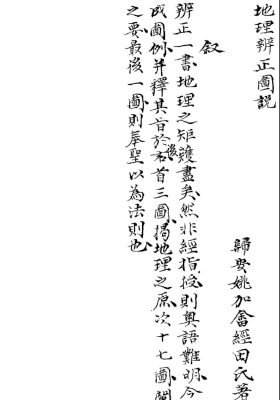 地理辨正圖說
歸安姚加畬經田氏著
叙
辨正一書地理之矩矱盡矣然非經指授則奧語難明今
成圖例并釋其旨於後右首三圖揭地理之原次十七圖
之要最後一圖則奉聖以為法則也